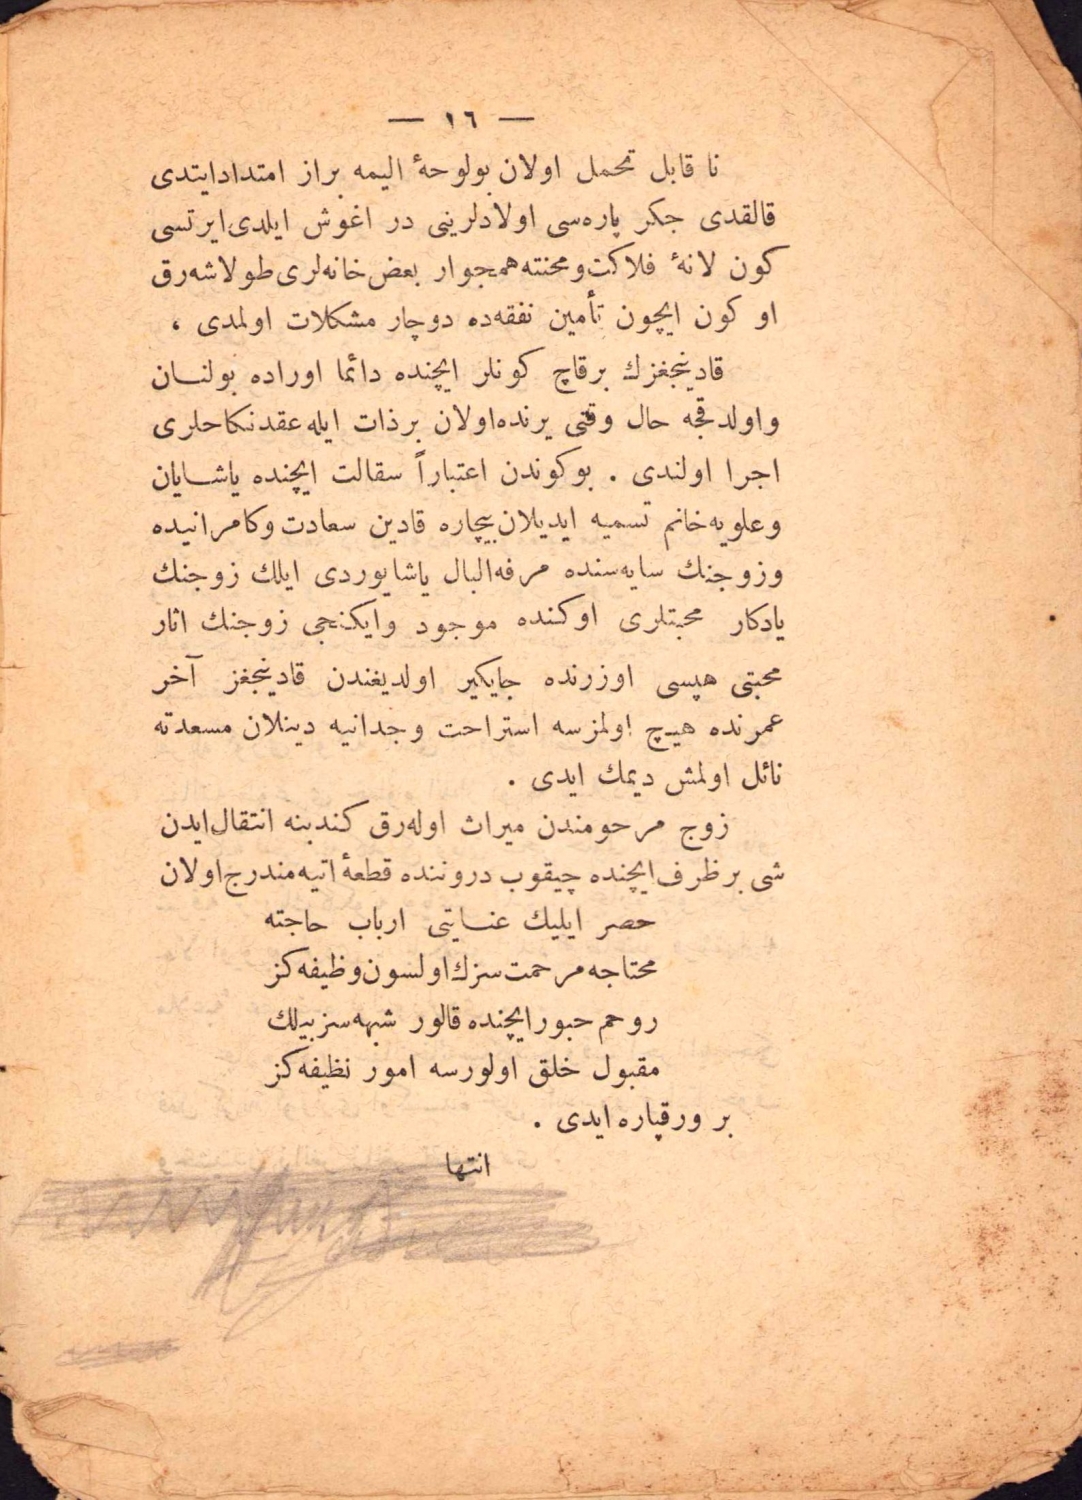 — ١٦ —
نا قابل تحمل اولان بولوحهٔ اليمه براز امتدادايتدى
قالقدى جكر پاره‌سى اولادلرينى در اغوش ايلدى ايرتسى
كون لانهٔ فلاكت ومحنته همجوار بعض خانه‌لرى طولاشه‌رق
او كون ايچون تأمين نفقه‌ده دوچار مشكلات اولمدى ،
قادينجغزك برقاچ كونلر ايچنده دائما اوراده بولنان
واولدقجه حال وقتى يرنده اولان برذات ايله عقدنكاحلرى
اجرا اولندى . بوكوندن اعتباراً سقالت ايچنده ياشايان
وعلويه خانم تسميه ايديلان بيچاره قادين سعادت وكامرانيده
وزوجنك سايه‌سنده مرفه البال ياشايوردى ايلك زوجنك
يادكار محبتلرى اوكنده موجود وايكنجى زوجنك اثار
محبتى هپسى اوزرنده جايكير اولديغندن قادينجغز آخر
عمرنده هيچ اولمزسه استراحت وجدانيه دينلان مسعدته
نائل اولمش ديمك ايدى .
زوج مرحومندن ميراث اوله‌رق كندينه انتقال ايدن
شى برظرف ايچنده چيقوب دروننده قطعهٔ اتيه مندرج اولان
حصر ايليك عنايتى ارباب حاجته
محتاجه مرحمت سزك اولسون وظيفه‌كز
روحم حبور ايچنده قالور شبهه‌سز بيلك
مقبول خلق اولورسه امور نظيفه‌كز
بر ورقپاره ايدى .
انتها